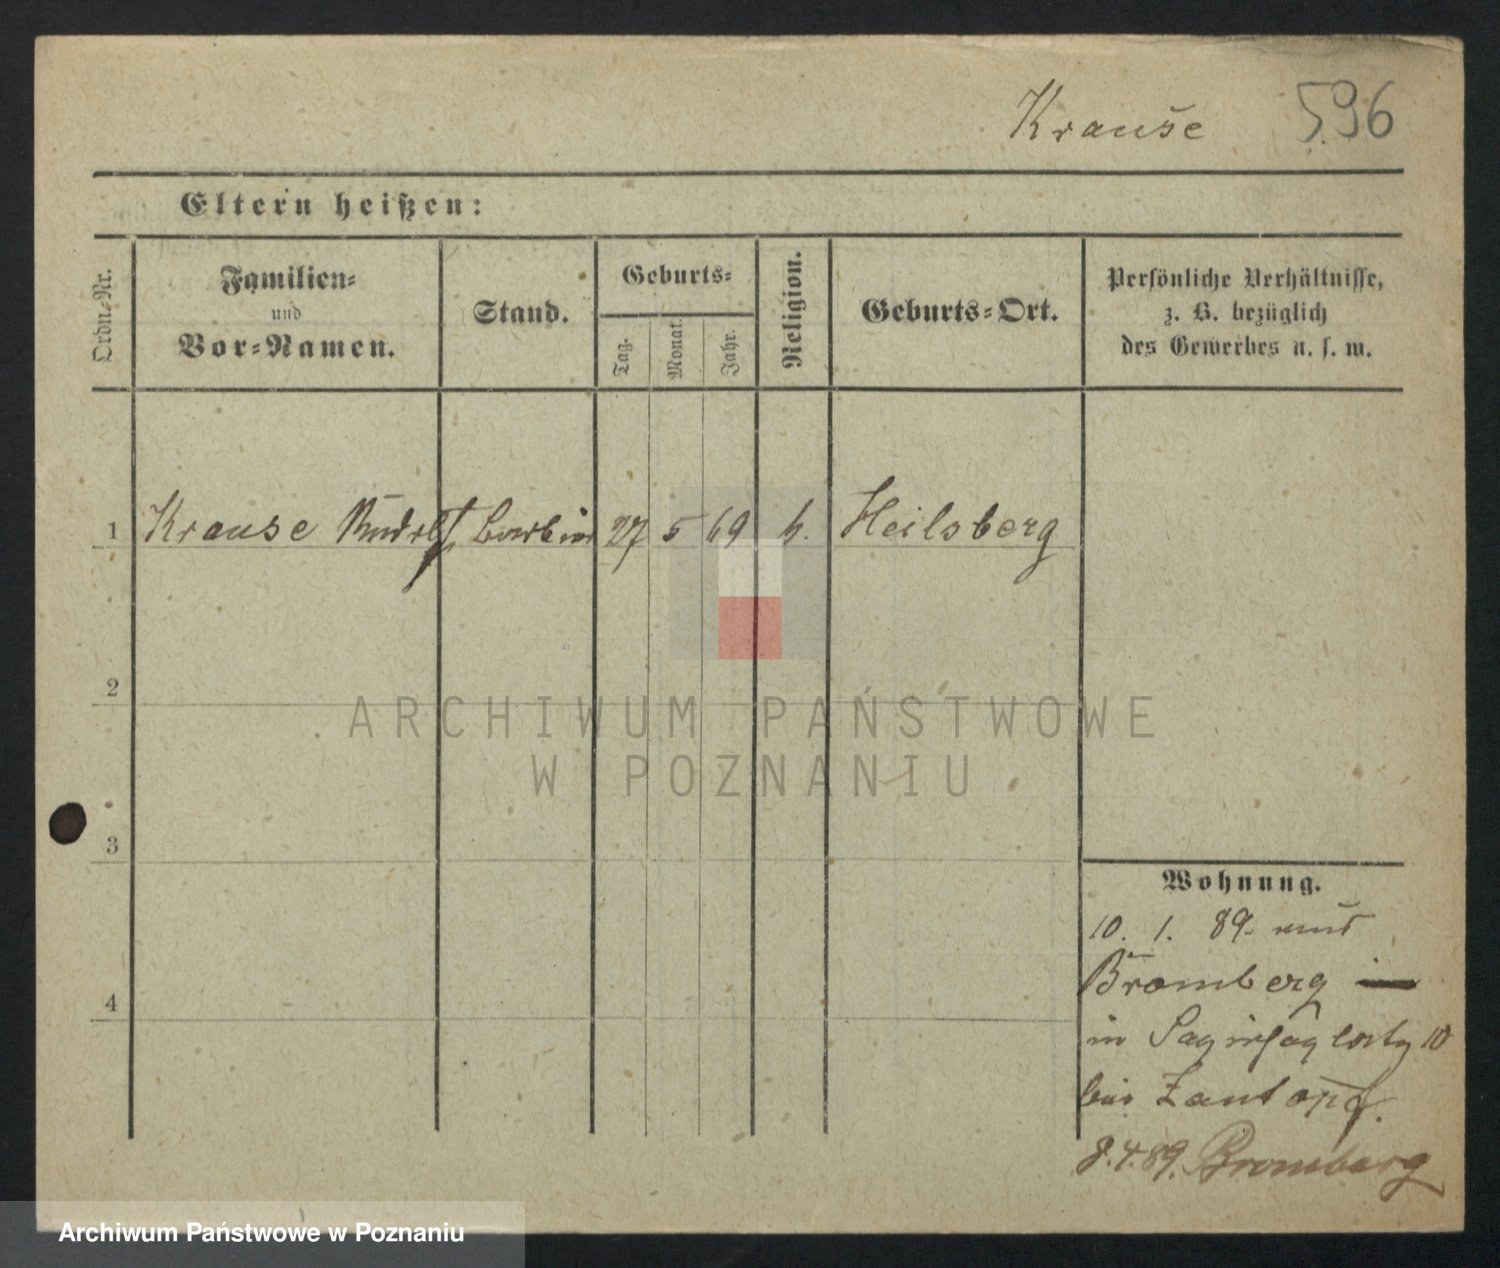 Krause 596
Eltern heißen:
Ordn.-Nr.
Familien-
und
Vor-Namen.
Stand.
Geburts-
Tag.
Monat.
Jahr.
Religion.
Geburts-Ort.
Persönliche Verhältnisse,
z. B. bezüglich
des Gewerbes u. s. w.
1 Krause Rudolf 27 5 69 k. Heilsberg
2
3
4
Wohnung.
10. 1. 89. aus
Bromberg
in 10
bei Zantopf.
8.4.89. Bromberg
ARCHIWUM PAŃSTWOWE
W POZNANIU
Archiwum Państwowe w Poznaniu